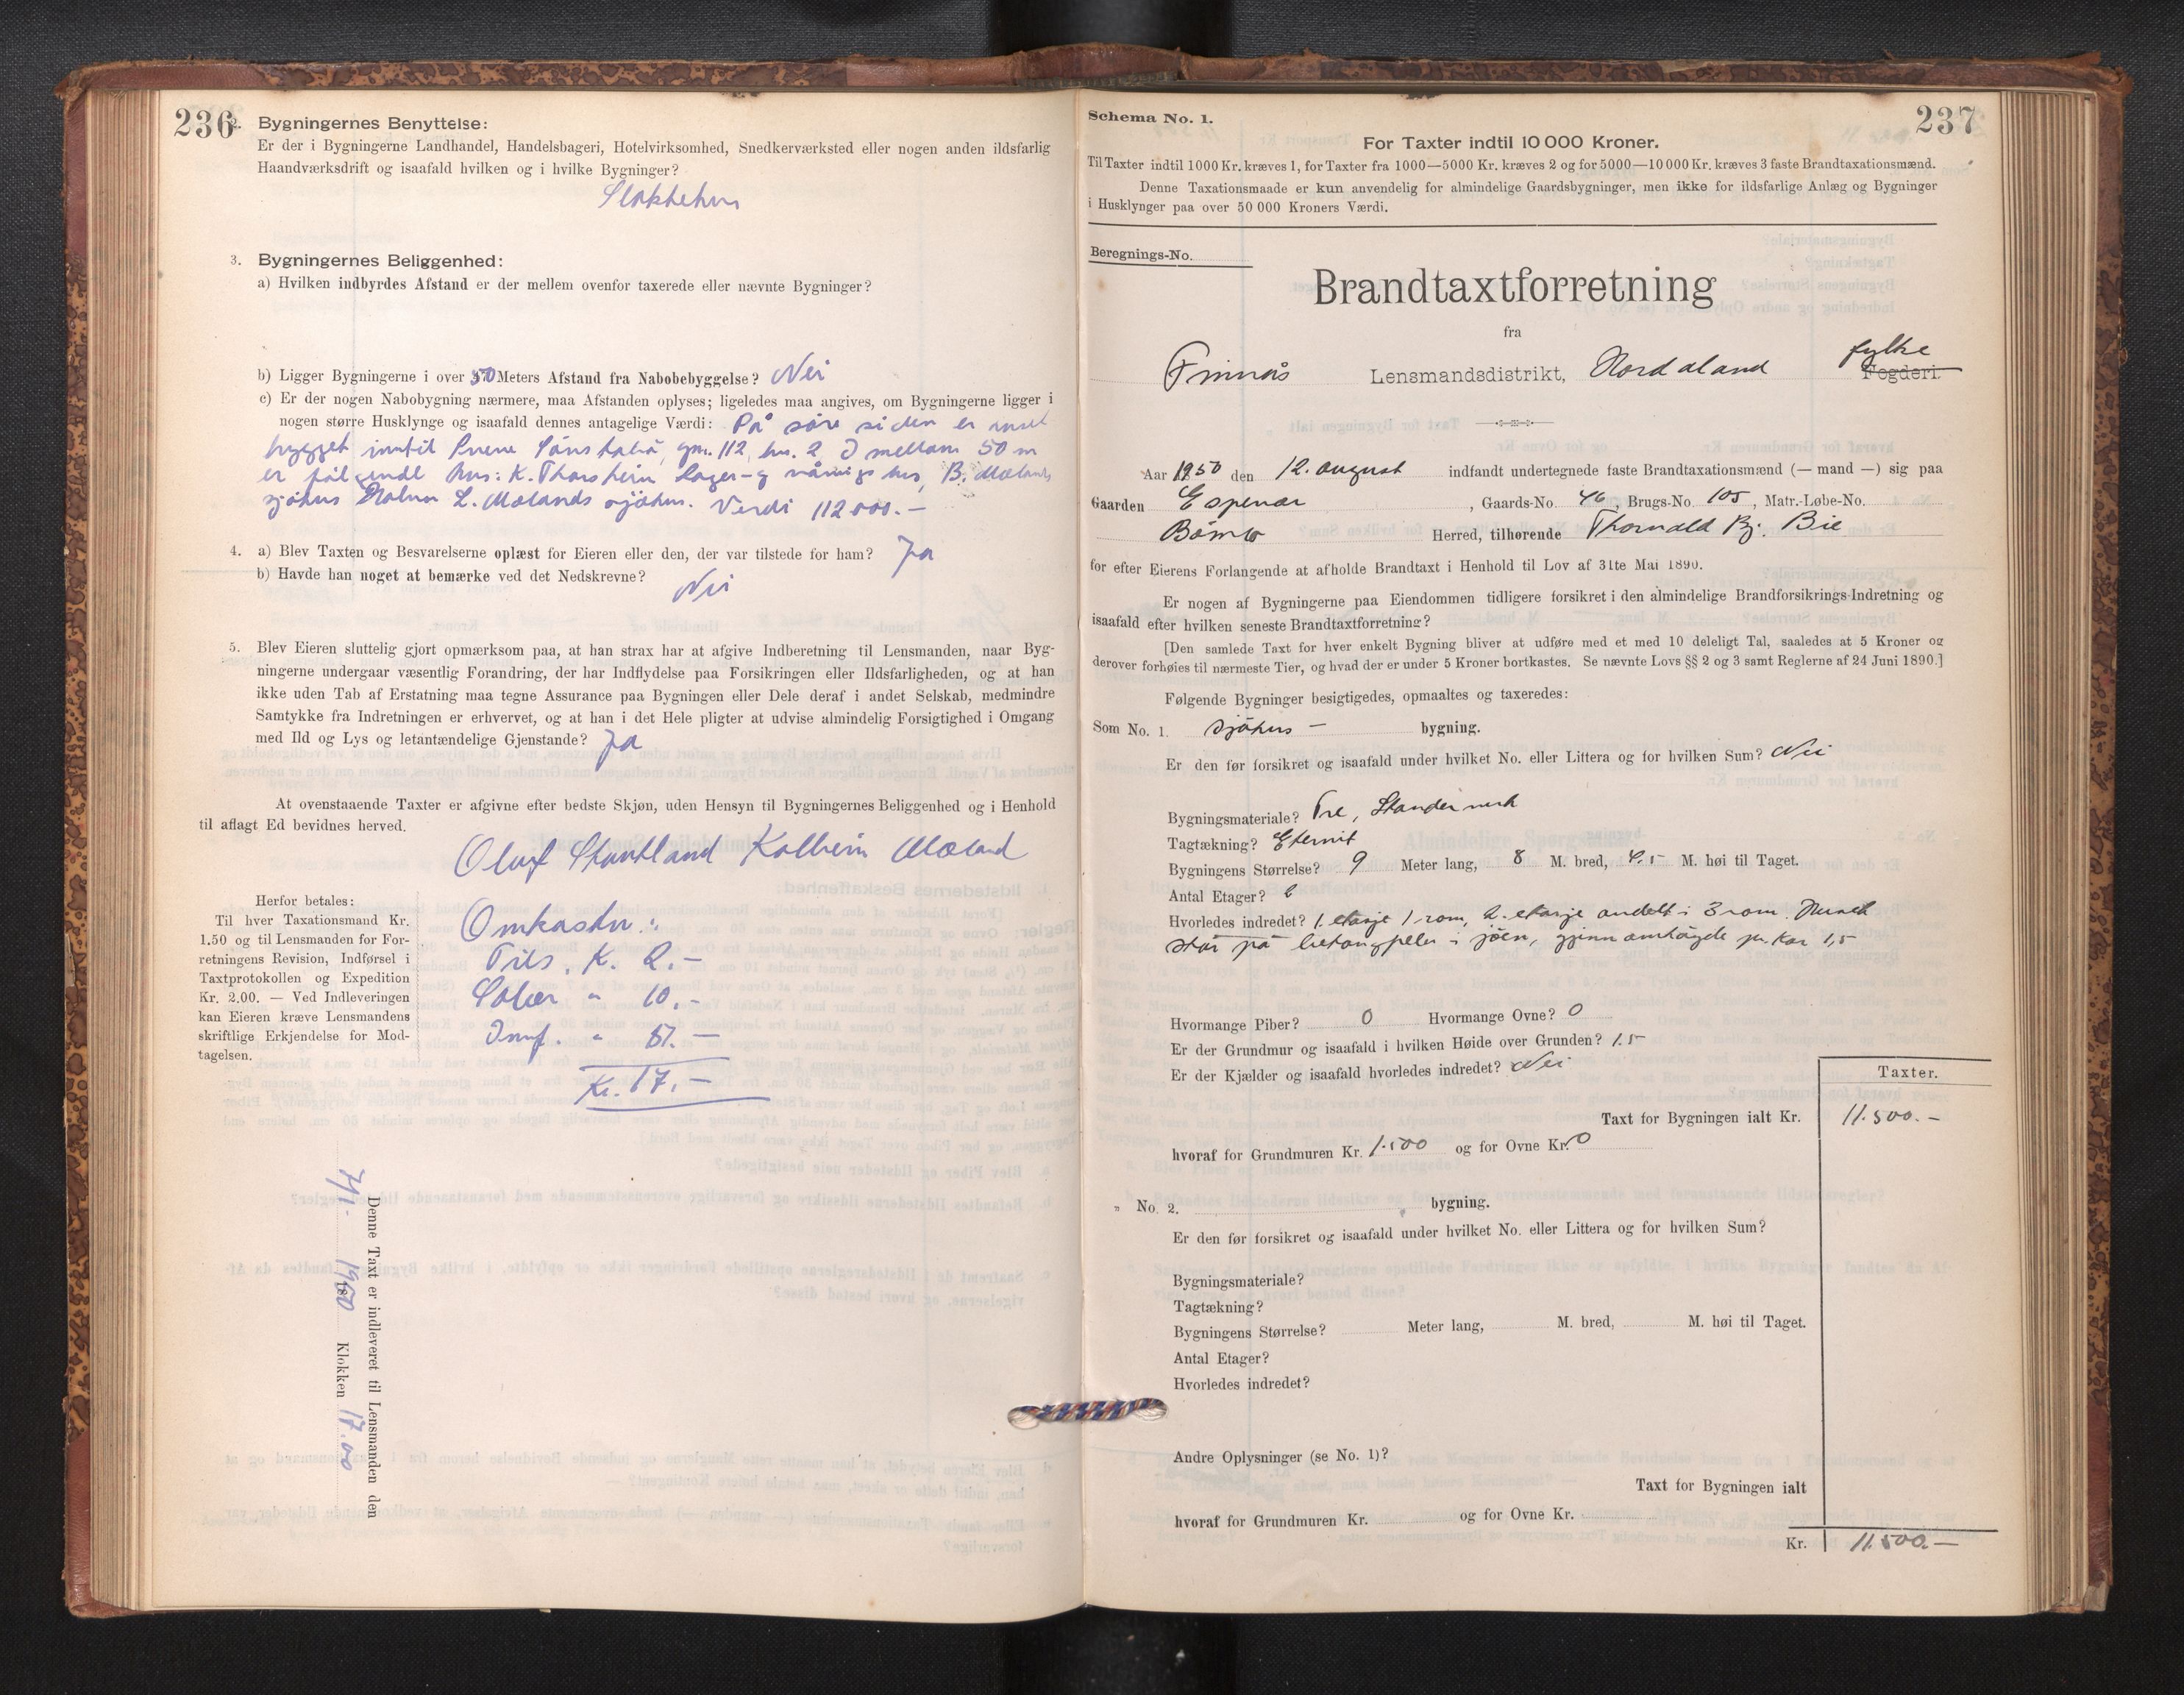 236
2. Bygningernes Benyttelse:
Er der i Bygningerne Landhandel, Handelsbageri, Hotelvirksomhed, Snedkerværksted eller nogen anden ildsfarlig
Haandværksdrift og isaafald hvilken og i hvilke Bygninger?
Slaktehus
3. Bygningernes Beliggenhed:
a) Hvilken indbyrdes Afstand er der mellem ovenfor taxerede eller nævnte Bygninger?
b) Ligger Bygningerne i over 50 Meters Afstand fra Nabobebyggelse? Nei
c) Er der nogen Nabobygning nærmere, maa Afstanden oplyses; ligeledes maa angives, om Bygningerne ligger i
nogen større Husklynge og isaafald dennes antagelige Værdi: På søre siden er
bygget inntil gnr. 112, bnr. 2 I mellom 50 m
er følgende hus: K. Thorsheim Lager- og våningshus, B. Mælands
sjøhus L. Mølands sjøhus. Verdi 112000.-
4. a) Blev Taxten og Besvarelserne oplæst for Eieren eller den, der var tilstede for ham? Ja
b) Havde han noget at bemærke ved det Nedskrevne? Nei
5. Blev Eieren sluttelig gjort opmærksom paa, at han strax har at afgive Indberetning til Lensmanden, naar Byg-
ningerne undergaar væsentlig Forandring, der har Indflydelse paa Forsikringen eller Ildsfarligheden, og at han
ikke uden Tab af Erstatning maa tegne Assurance paa Bygningen eller Dele deraf i andet Selskab, medmindre
Samtykke fra Indretningen er erhvervet, og at han i det Hele pligter at udvise almindelig Forsigtighed i Omgang
med Ild og Lys og letantændelige Gjenstande? Ja
At ovenstaaende Taxter er afgivne efter bedste Skjøn, uden Hensyn til Bygningernes Beliggenhed og i Henhold
til aflagt Ed bevidnes herved.
Oluf Stautland Kolbein Mæland
Herfor betales:
Til hver Taxationsmand Kr.
1.50 og til Lensmanden for For-
retningens Revision, Indførsel i
Taxtprotokollen og Expedition
Kr. 2.00. — Ved Indleveringen
kan Eieren kræve Lensmandens
skriftlige Erkjendelse for Mod-
tagelsen.
Omkostn.:
K. 2.-
" 10.-
" 5.-
Kr. 17.-
Denne Taxt er indleveret til Lensmanden den
1950 Klokken 17.00
237
Schema No. 1.
For Taxter indtil 10 000 Kroner.
Til Taxter indtil 1000 Kr. kræves 1, for Taxter fra 1000—5000 Kr. kræves 2 og for 5000—10 000 Kr. kræves 3 faste Brandtaxationsmænd.
Denne Taxationsmaade er kun anvendelig for almindelige Gaardsbygninger, men ikke for ildsfarlige Anlæg og Bygninger
i Husklynger paa over 50 000 Kroners Værdi.
Beregnings-No.
Brandtaxtforretning
fra
Finnås Lensmandsdistrikt, Hordaland fylke Fogderi.
Aar 1950 den 12. august indfandt undertegnede faste Brandtaxationsmænd (— mand —) sig paa
Gaarden Espevær, Gaards-No. 46, Brugs-No. 105, Matr.-Løbe-No.
Bømlo Herred, tilhørende Thorvald Bj. Bie
for efter Eierens Forlangende at afholde Brandtaxt i Henhold til Lov af 31te Mai 1890.
Er nogen af Bygningerne paa Eiendommen tidligere forsikret i den almindelige Brandforsikrings-Indretning og
isaafald efter hvilken seneste Brandtaxtforretning?
[Den samlede Taxt for hver enkelt Bygning bliver at udføre med et med 10 deleligt Tal, saaledes at 5 Kroner og
derover forhøies til nærmeste Tier, og hvad der er under 5 Kroner bortkastes. Se nævnte Lovs §§ 2 og 3 samt Reglerne af 24 Juni 1890.]
Følgende Bygninger besigtigedes, opmaaltes og taxeredes:
Som No. 1. sjøhus - bygning.
Er den før forsikret og isaafald under hvilket No. eller Littera og for hvilken Sum? Nei
Bygningsmateriale? Tre, Standerverk
Tagtækning? Eternit
Bygningens Størrelse? 9 Meter lang, 8 M. bred, 4.5 M. høi til Taget.
Antal Etager? 2
Hvorledes indredet? 1. etasje 1 rom, 2. etasje avdelt i 3 rom. Huset
står på betongpeler i sjøen, gjennomhøgde pr. kar 1,5
Hvormange Piber? 0 Hvormange Ovne? 0
Er der Grundmur og isaafald i hvilken Høide over Grunden? 1.5
Er der Kjælder og isaafald hvorledes indredet? Nei
Taxter.
Taxt for Bygningen ialt Kr. 11.500.-
hvoraf for Grundmuren Kr. 1.500 og for Ovne Kr. 0
" No. 2. bygning.
Er den før forsikret og isaafald under hvilket No. eller Littera og for hvilken Sum?
Bygningsmateriale?
Tagtækning?
Bygningens Størrelse? Meter lang, M. bred, M. høi til Taget.
Antal Etager?
Hvorledes indredet?
Andre Oplysninger (se No. 1)?
Taxt for Bygningen ialt
hvoraf for Grundmuren Kr. og for Ovne Kr.
Kr. 11.500.-